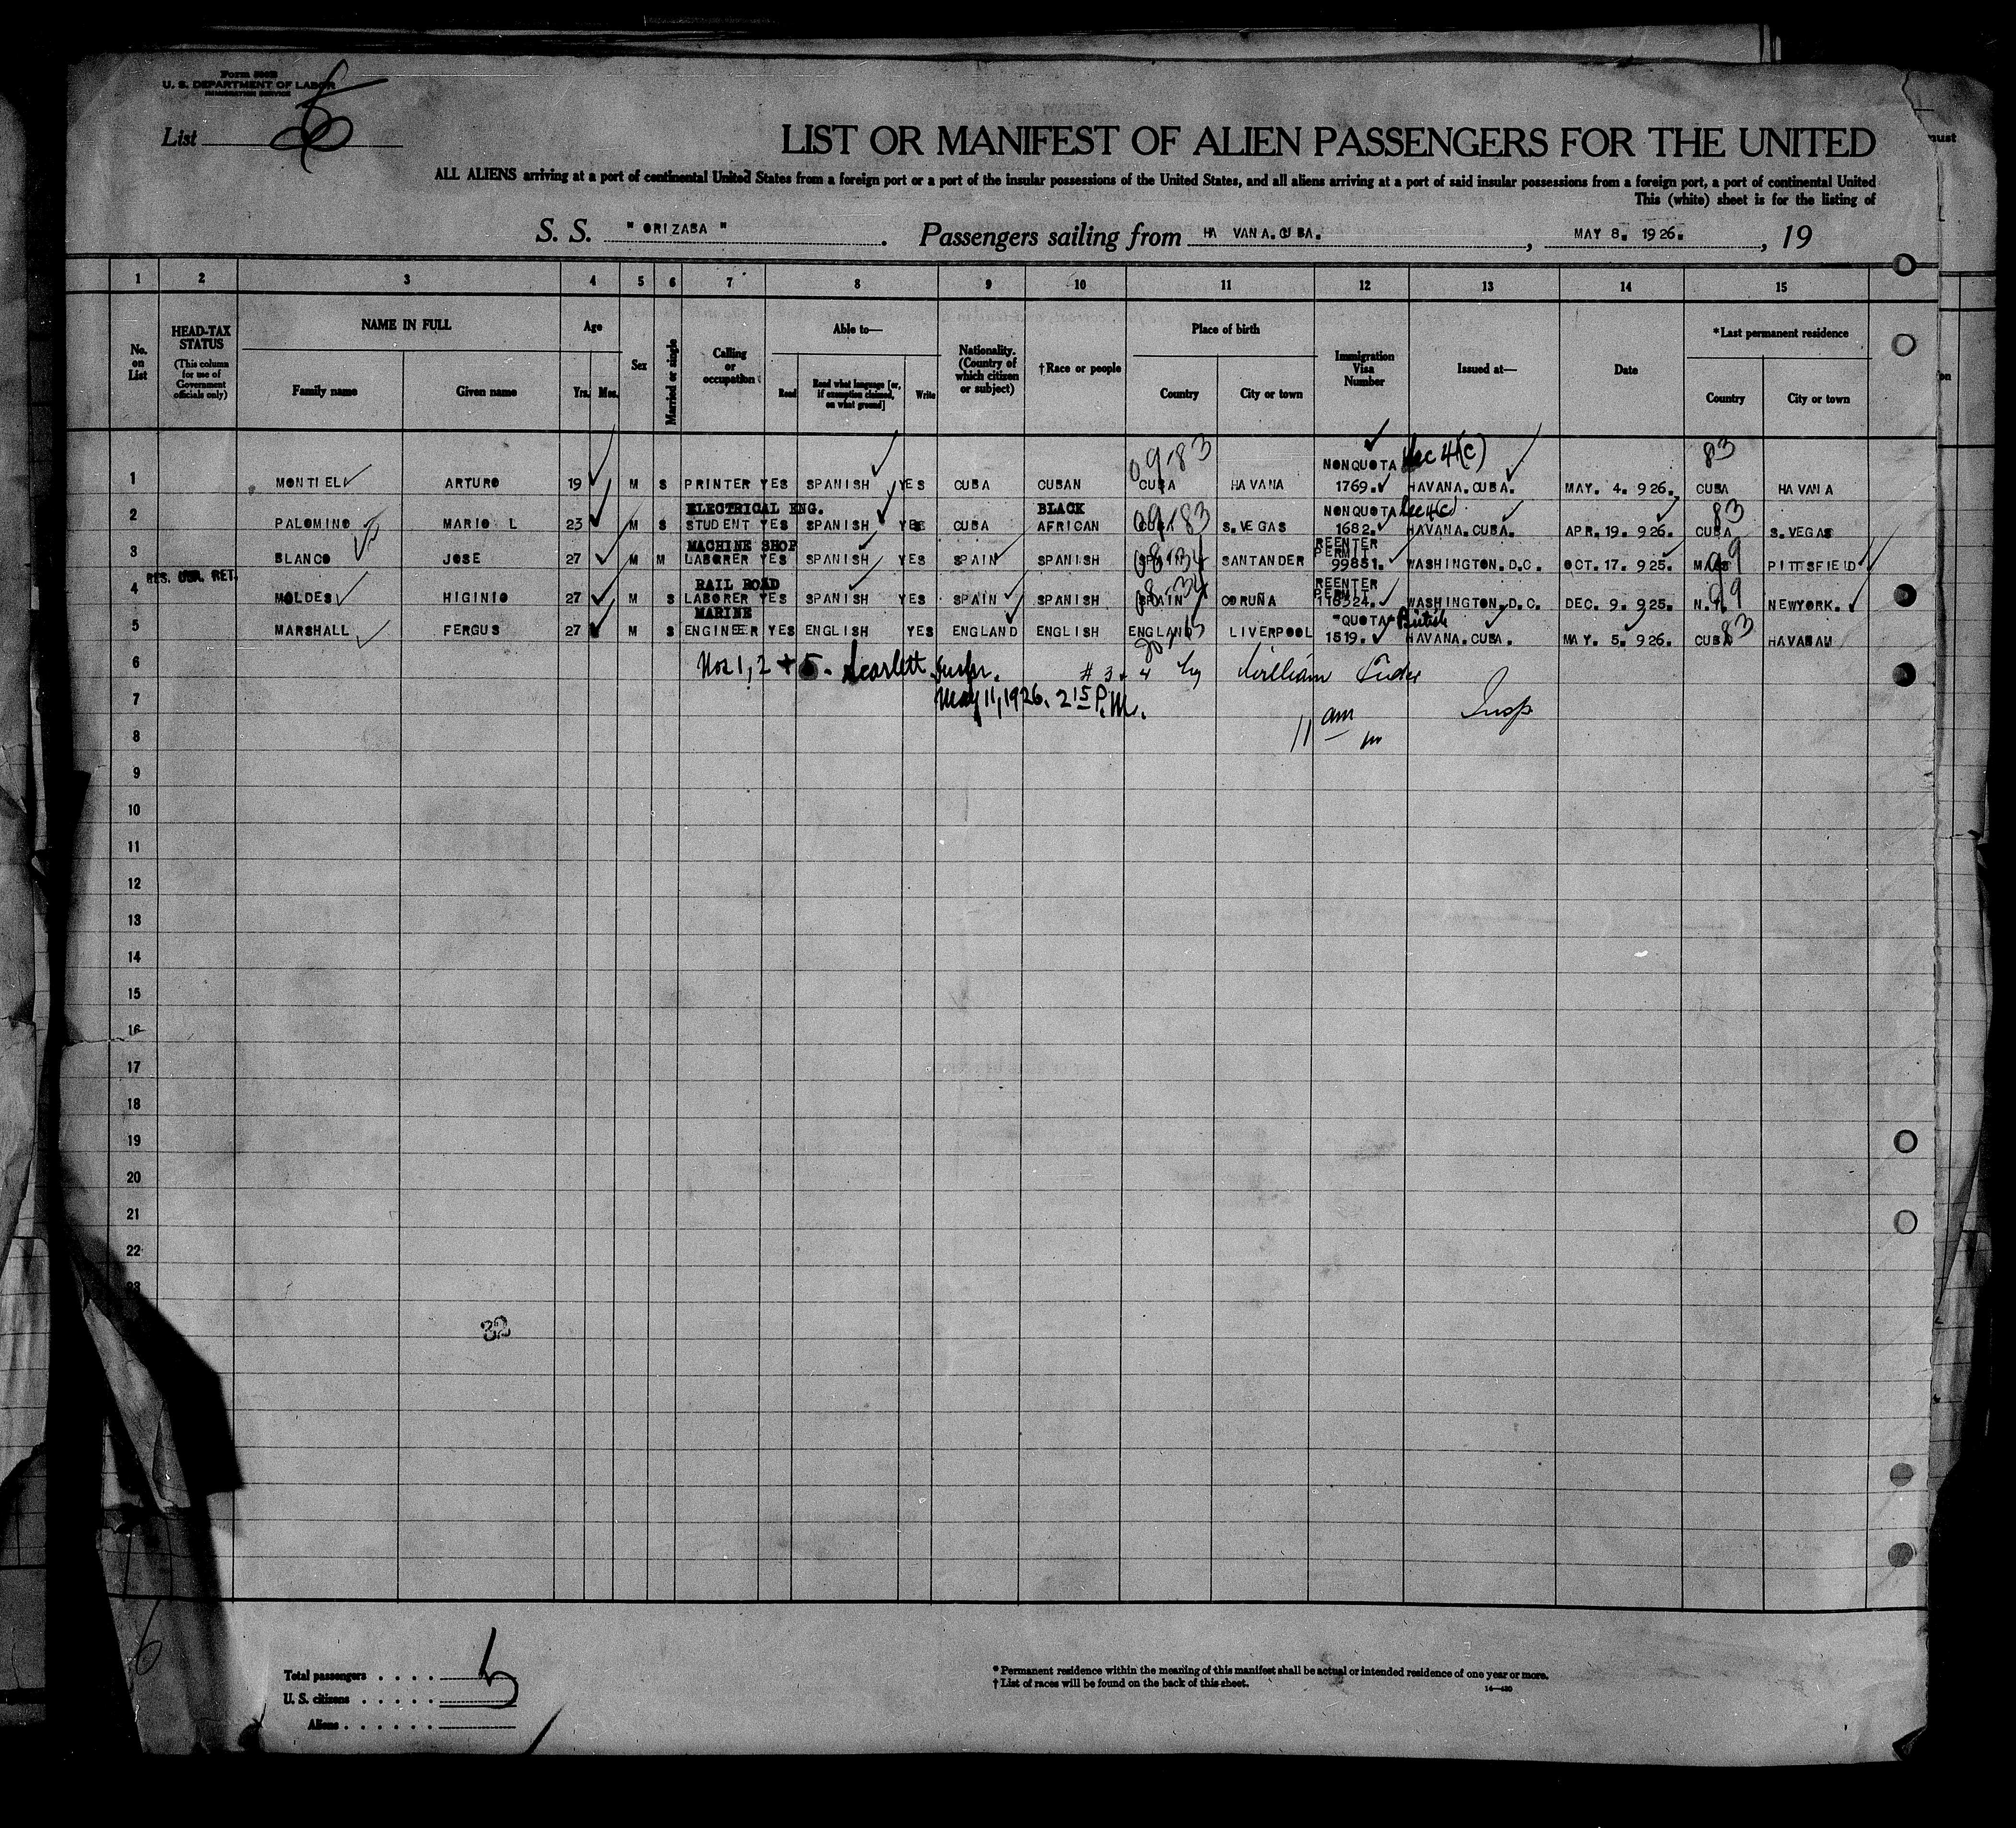 Form 500B
U. S. DEPARTMENT OF LABOR
IMMIGRATION SERVICE
List
LIST OR MANIFEST OF ALIEN PASSENGERS FOR THE UNITED
ALL ALIENS arriving at a port of continental United States from a foreign port or a port of the insular possessions of the United States, and all aliens arriving at a port of said insular possessions from a foreign port, a port of continental United
This (white) sheet is for the listing of
S. S. " ORIZABA " . Passengers sailing from HA VANA.CUBA. , MAY 8. 1926. , 19
1 2 3 4 5 6 7 8 9 10 11 12 13 14 15
No. on List
HEAD-TAX STATUS (This column for use of Government officials only)
NAME IN FULL
Family name Given name
Age
Yrs. Mos.
Sex
Married or single
Calling or occupation
Able to—
Read Read what language [or, if exemption claimed, on what ground] Write
Nationality. (Country of which citizen or subject)
†Race or people
Place of birth
Country City or town
Immigration Visa Number
Issued at—
Date
*Last permanent residence
Country City or town
09-83 NONQUOTA Sec 4(c) 83
1 MONTIEL ARTURO 19 M S PRINTER YES SPANISH YES CUBA CUBAN CUBA HAVANA 1769. HAVANA.CUBA. MAY. 4. 926. CUBA HAVANA
ELECTRICAL ENG. BLACK 09-83 NONQUOTA Sec 4(c) 83
2 PALOMINO MARIO L 23 M S STUDENT YES SPANISH YES CUBA AFRICAN CUBA S.VEGAS 1682. HAVANA.CUBA. APR. 19. 926. CUBA S.VEGAS
MACHINE SHOP 08-34 REENTER PERMIT 99
3 BLANCO JOSE 27 M M LABORER YES SPANISH YES SPAIN SPANISH SPAIN SANTANDER 99851. WASHINGTON.D.C. OCT. 17. 925. MASS PITTSFIELD
RAIL ROAD 08-34 REENTER PERMIT 99
4 MOLDES HIGINIO 27 M S LABORER YES SPANISH YES SPAIN SPANISH SPAIN CORUÑA 116324. WASHINGTON.D.C. DEC. 9. 925. N.Y. NEWYORK.
MARINE QUOTA British 83
5 MARSHALL FERGUS 27 M S ENGINEER YES ENGLISH YES ENGLAND ENGLISH ENGLAND LIVERPOOL 1519. HAVANA.CUBA. MAY. 5. 926. CUBA HAVABAM
6 Nos 1, 2 + 5. Scarlett Inspr. # 3 + 4 by William
7 May 11, 1926. 2 15 P.M. Insp
11 am
8
9
10
11
12
13
14
15
16
17
18
19
20
21
22
23
32
Total passengers . . . . 5
U. S. citizens . . . . .
Aliens . . . . . .
* Permanent residence within the meaning of this manifest shall be actual or intended residence of one year or more.
† List of races will be found on the back of this sheet.
14—430